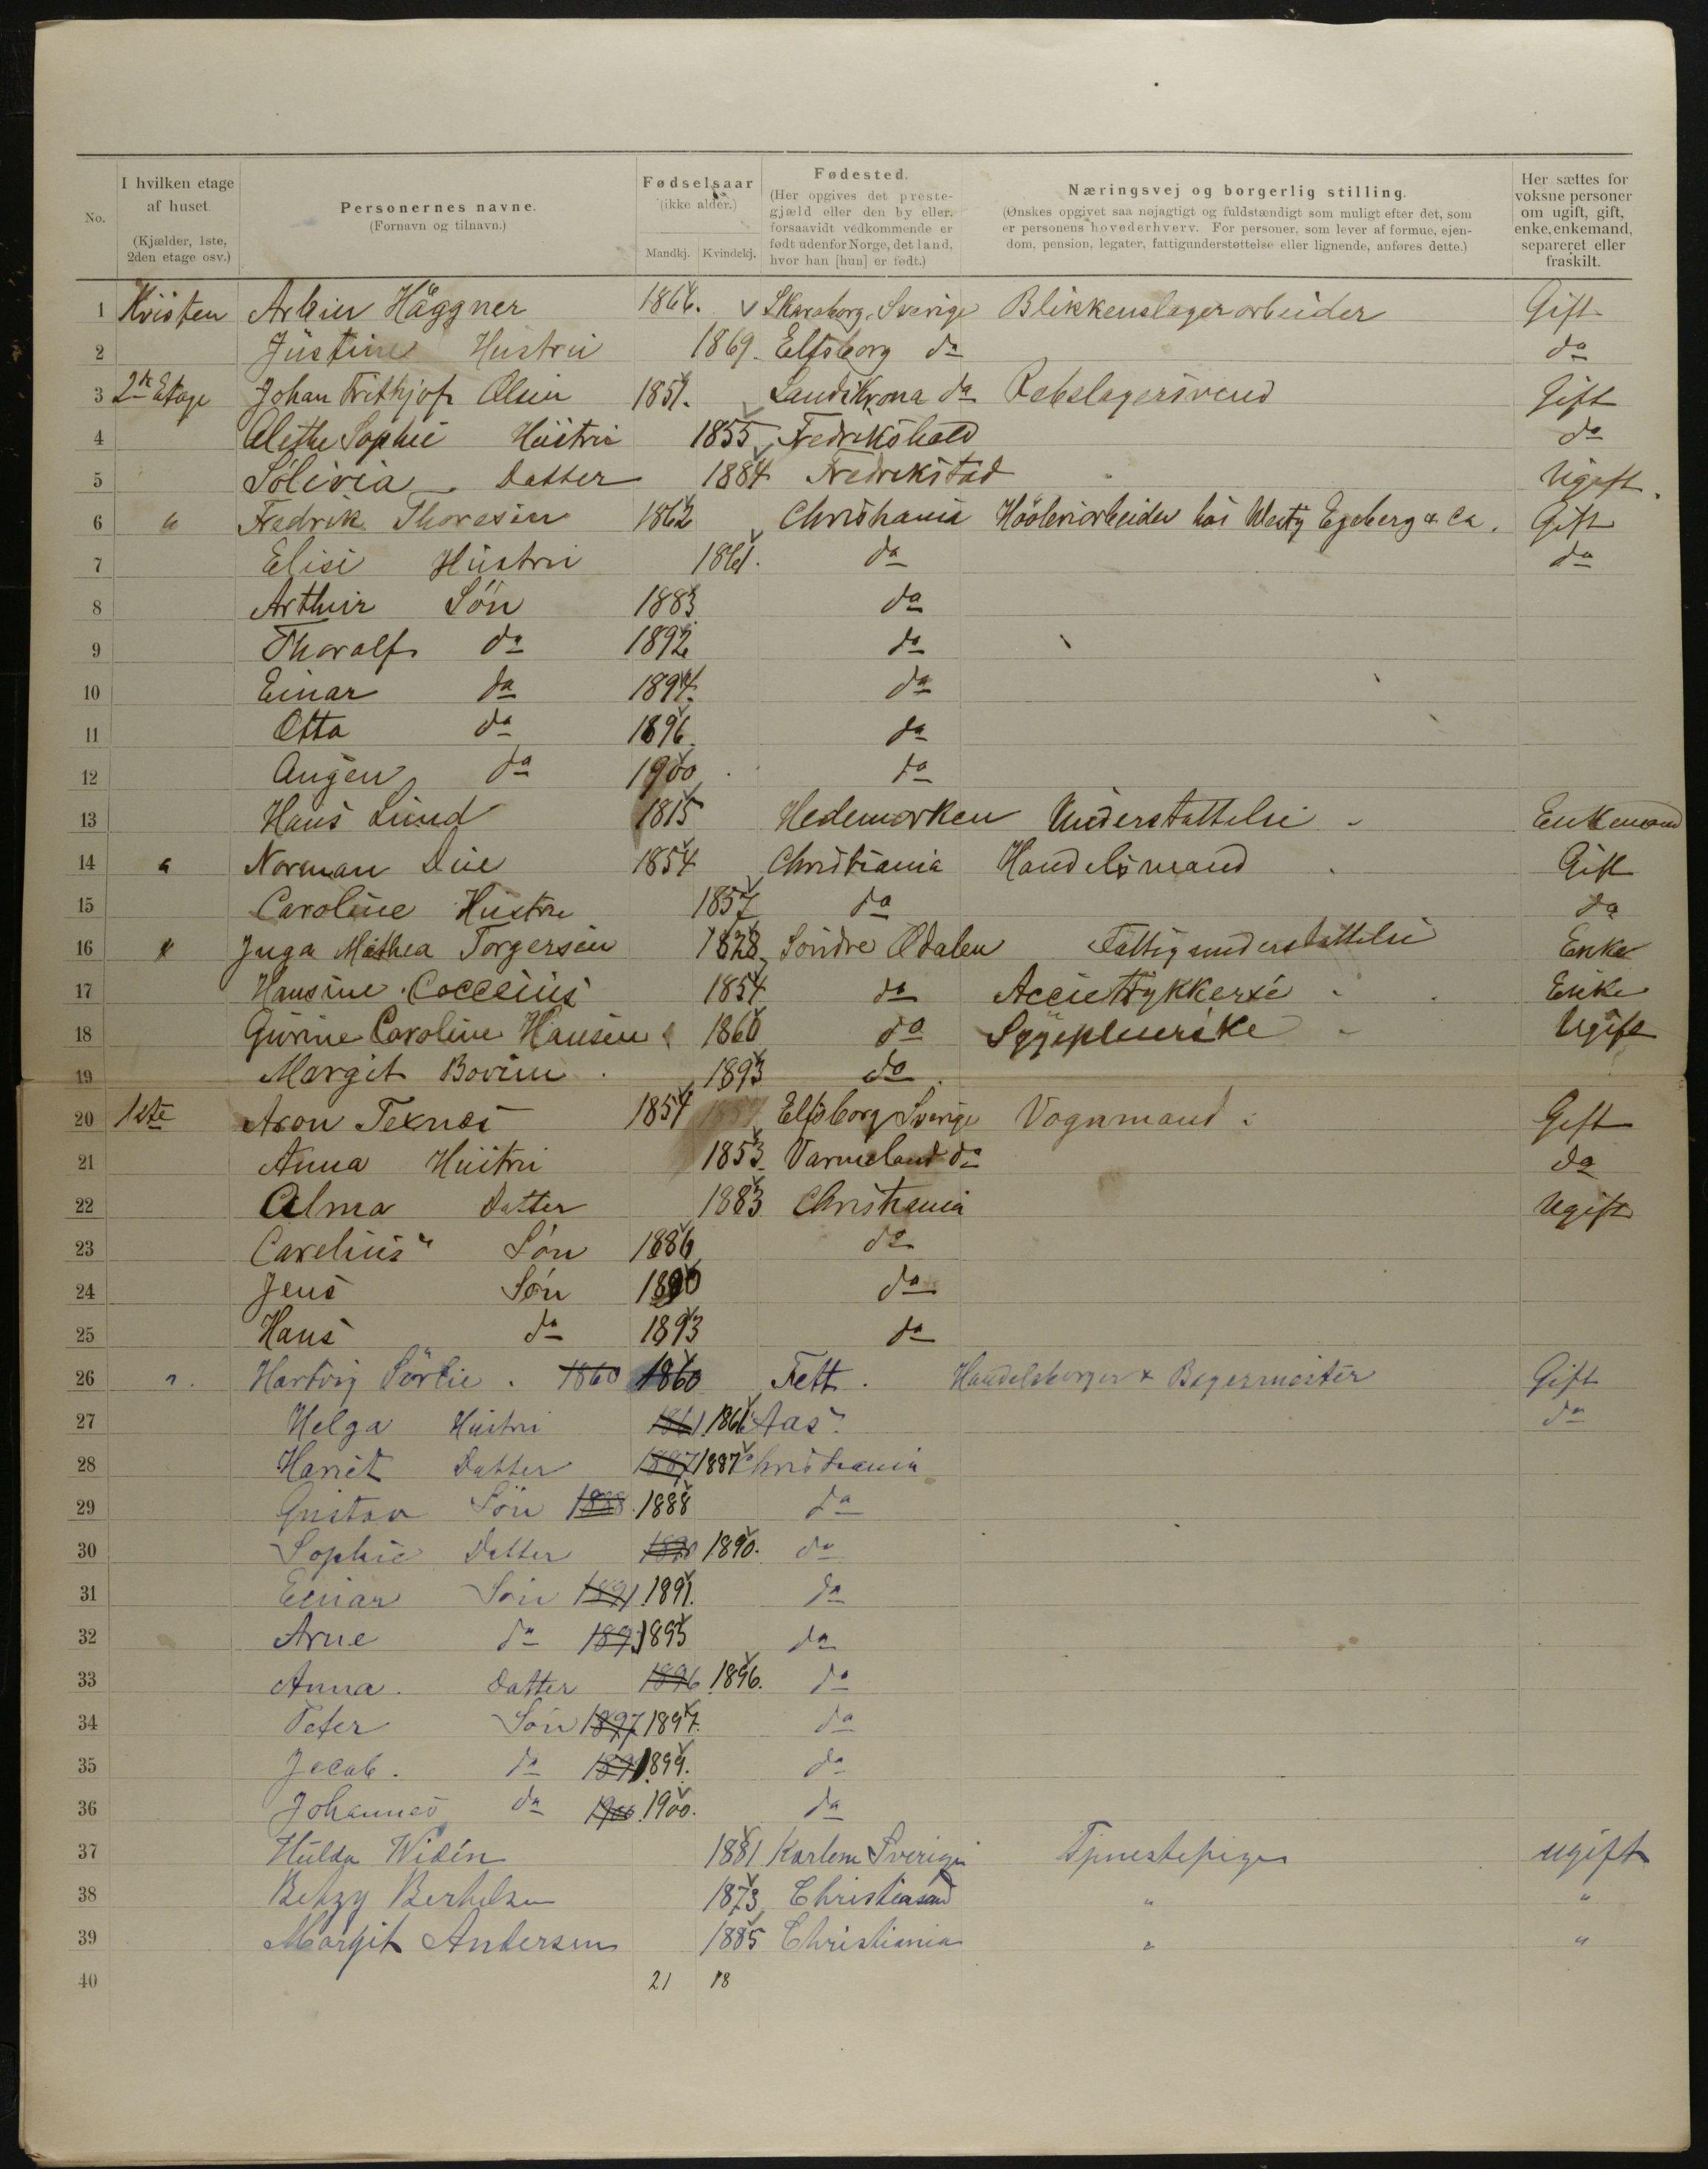 No.
I hvilken etage af huset. (Kjælder, 1ste, 2den etage osv.)
Personernes navne. (Fornavn og tilnavn.)
Fødselsaar (ikke alder.) Mandkj. Kvindekj.
Fødested. (Her opgives det prestegjæld eller den by eller, forsaavidt vedkommende er født udenfor Norge, det land, hvor han [hun] er født.)
Næringsvej og borgerlig stilling. (Ønskes opgivet saa nøjagtigt og fuldstændigt som muligt efter det, som er personens hovederhverv. For personer, som lever af formue, ejendom, pension, legater, fattigunderstøttelse eller lignende, anføres dette.)
Her sættes for voksne personer om ugift, gift, enke, enkemand, separeret eller fraskilt.
1 Kvisten Häggner 1866. Skaraborg. Sverige Blikkenslagerarbeider Gift
2 Justine Hustru 1869. Elfsborg do do
3 2den Etage Johan Frithjof Olsen 1851. Landskrona do Rebslagersvend Gift
4 Alethe Sophie Hustru 1855 Fredrikshald do
5 Datter 1884 Fredrikstad Ugift.
6 " Fredrik Thoresen 1862 Christiania Hövleriarbeider hos Westy Egeberg & Co. Gift
7 Elise Hustru 1861. do do
8 Arthur Sön 1883 do
9 Thoralf do 1892 do
10 Einar do 1894. do
11 Otto do 1896. do
12 do 1900 do
13 Hans Lund 1815 Hedemarken Understøttelse Enkemand
14 " Norman Due 1854 Christiania Handelsmand Gift
15 Caroline Hustru 1857 do do
16 " Inga Mathea Torgersen 1828 Söndre Odalen Fattigunderstøttelse Enke
17 Hansine Cocceius 1854 do Enke
18 Gurine Caroline Hansen 1860 do Sygepleierske Ugift
19 Margit 1893 do
20 1ste Aron Texnes 1854 Elfsborg Sverige Vognmand Gift
21 Anna Hustru 1853 Varmeland do do
22 Alma Datter 1883 Christiania Ugift
23 Carelius Sön 1886 do
24 Jens Sön 1890 do
25 Hans do 1893 do
26 " Hartvig Sörlie. 1860 1860 Fett. Handelsborger & Bagermester Gift
27 Helga Hustru 1861 1861 Aas. do
28 Harriet Datter 1887 1887 Christiania
29 Gustav Sön 1888 1888 do
30 Sophie Datter 1890 1890. do
31 Einar Sön 1891 1891. do
32 Arne do 1895 do
33 Anna. Datter 1896 1896. do
34 Peter Sön 1897 1897. do
35 Jacob. do 1899. do
36 Johannes do 1900 1900. do
37 Hulda Widén 1881 Sverige Tjenestepige ugift
38 Betzy Berthelsen 1873 Christiansand " "
39 Margit Andersen 1885 Christiania " "
40 21 18